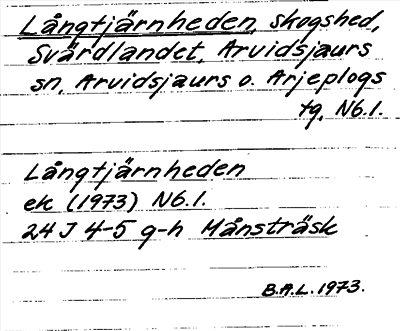 Långtjärnheden, skogshed,
Svärdlandet, Arvidsjaurs
sn, Arvidsjaurs o. Arjeplogs
tg, Nb.l.
Långtjärnheden
ek (1973) Nb.l.
24J 4-5 g-h Månsträsk
B.A.L. 1973.